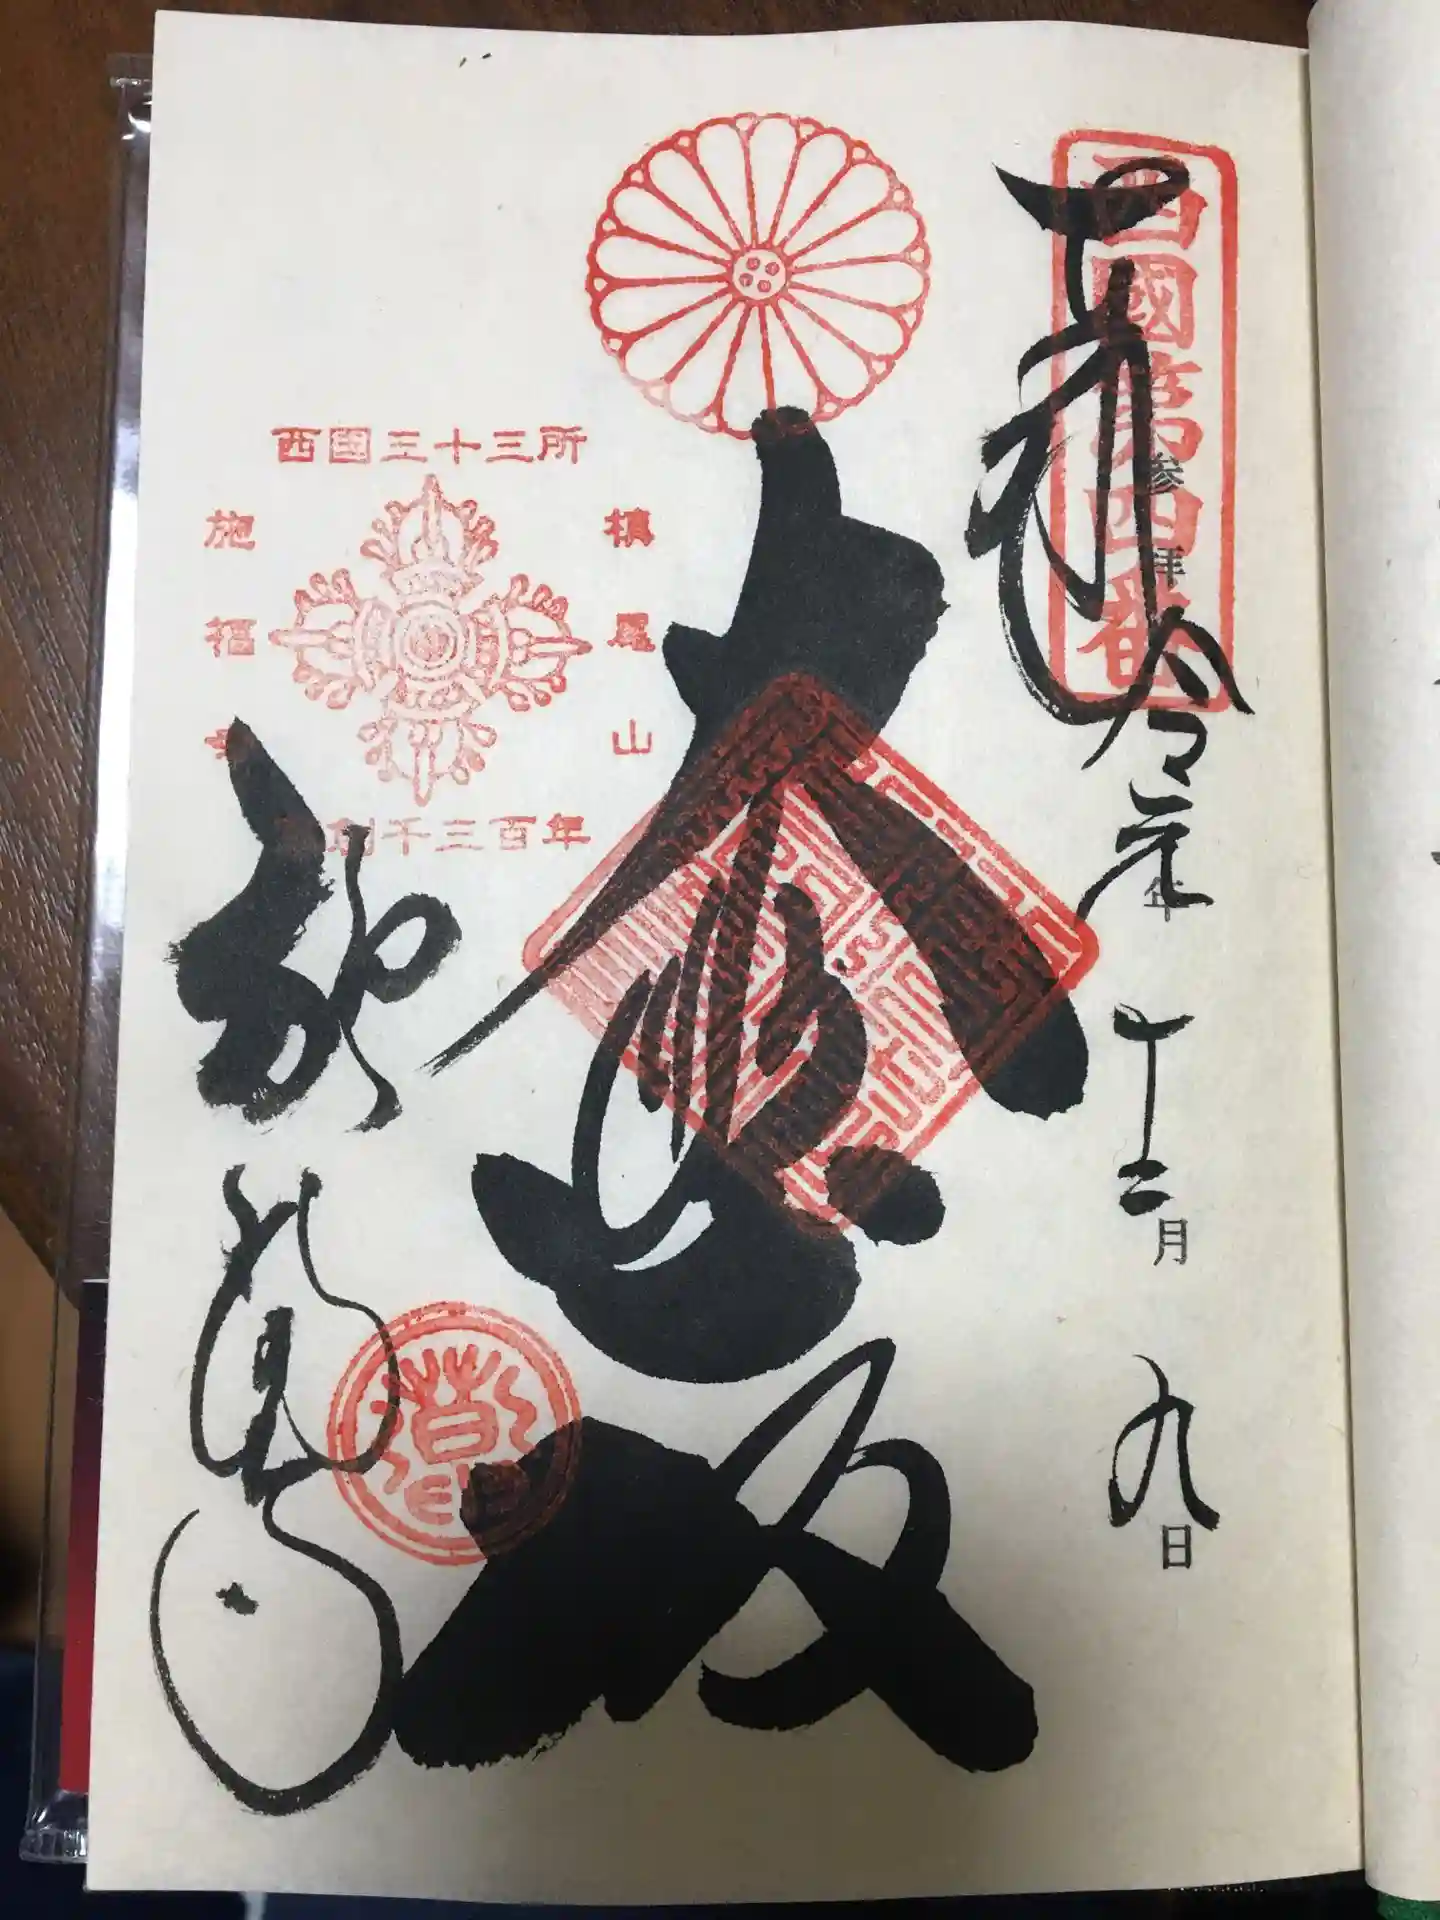 西國第四番
奉拝
参拝
令和元年
十二月
九日
大悲殿
西国三十三所
槙尾山
施福寺
草創千三百年
施福寺